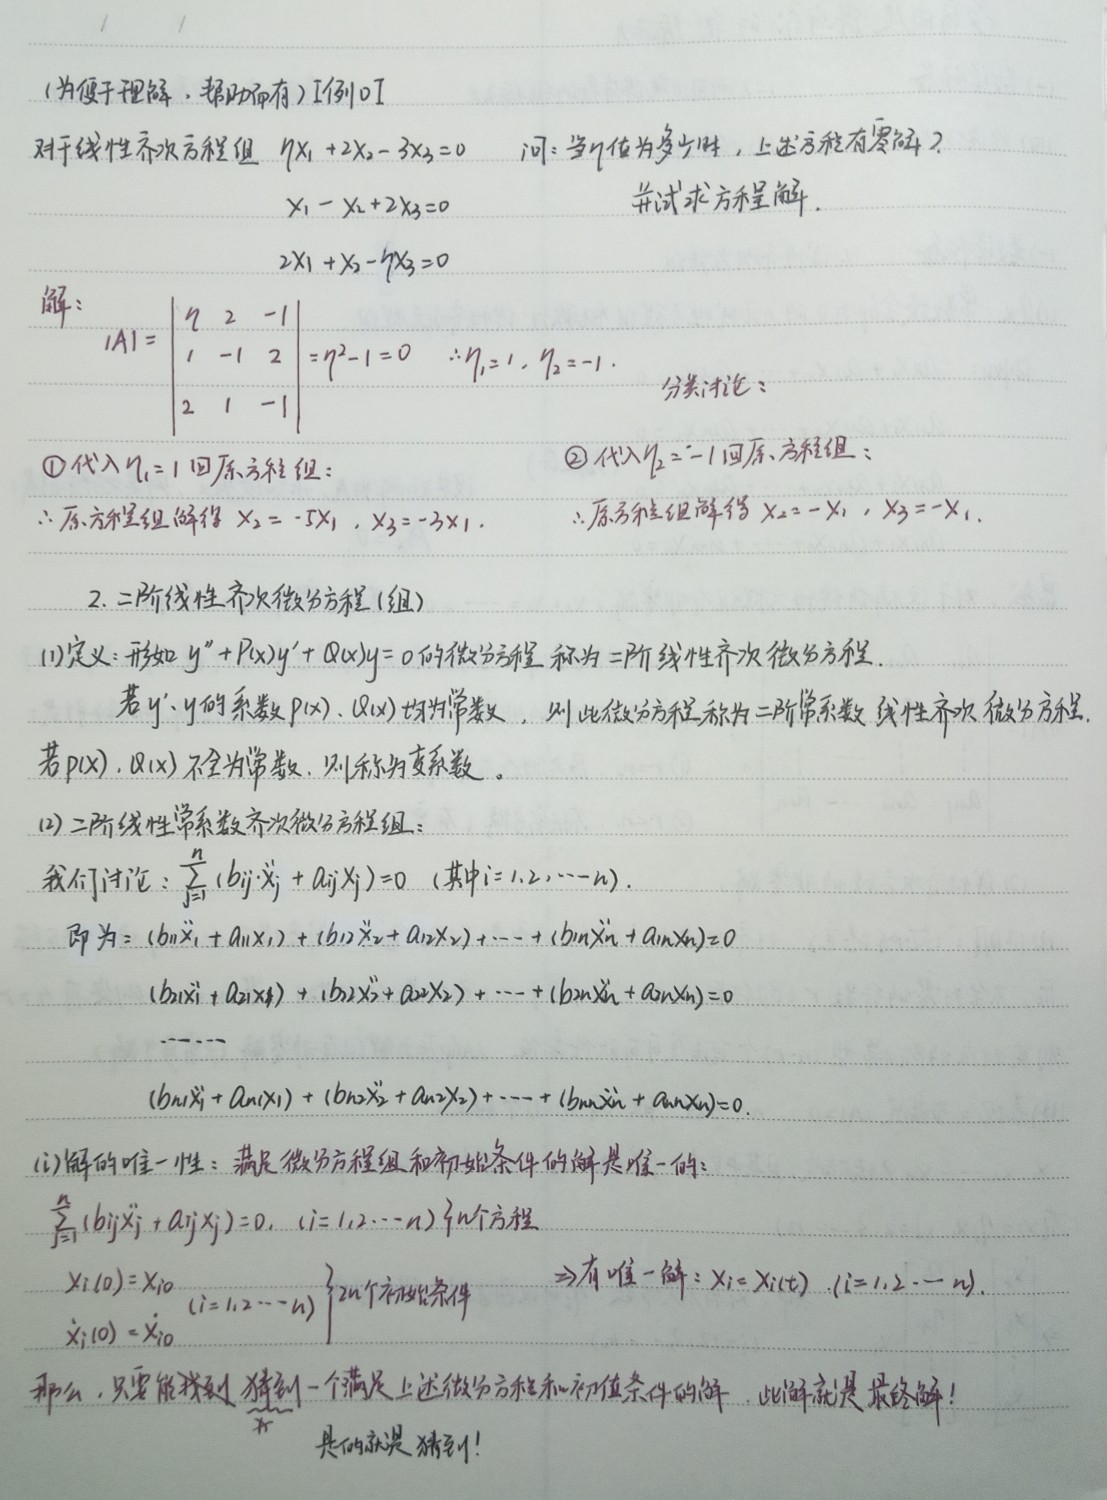 (为便于理解，帮助而有)【例0】
对于线性齐次方程组 ηx₁+2x₂-3x₃=0 问：当η值为多少时，上述方程有零解？
x₁-x₂+2x₃=0 并试求方程解.
2x₁+x₂-ηx₃=0
解：
|A|= | η 2 -1 |
| 1 -1 2 | =η²-1=0 ∴η₁=1，η₂=-1.
| 2 1 -1 |
分类讨论：
①代入η₁=1回原方程组：
∴原方程组解得 x₂=-5x₁，x₃=-3x₁.
②代入η₂=-1回原方程组：
∴原方程组解得 x₂=-x₁，x₃=-x₁.
2.二阶线性齐次微分方程(组)
(1)定义：形如 y″+P(x)y′+Q(x)y=0的微分方程 称为二阶线性齐次微分方程.
若y′、y的系数p(x)、Q(x)均为常数，则此微分方程称为二阶常系数线性齐次微分方程.
若p(x)，Q(x)不全为常数，则称为变系数。
(2)二阶线性常系数齐次微分方程组：
我们讨论：∑ⱼ₌₁ⁿ(bij·ẍj+aijxj)=0 (其中i=1,2,…n).
即为：(b11ẍ1+a11x1)+(b12ẍ2+a12x2)+…+(b1nẍn+a1nxn)=0
(b21ẍ1+a21x1)+(b22ẍ2+a22x2)+…+(b2nẍn+a2nxn)=0
……
(bn1ẍ1+an1x1)+(bn2ẍ2+an2x2)+…+(bnnẍn+annxn)=0.
(i)解的唯一性：满足微分方程组和初始条件的解是唯一的：
∑ⱼ₌₁ⁿ(bijẍj+aijxj)=0，(i=1,2…n)}n个方程
xi(0)=xi0
(i=1,2…n) }2n个初始条件 ⇒有唯一解：xi=xi(t).(i=1,2…n).
ẋi(0)=ẋi0
那么，只要能找到 猜到一个满足上述微分方程和初值条件的解，此解就是最终解！
是的就是猜到！